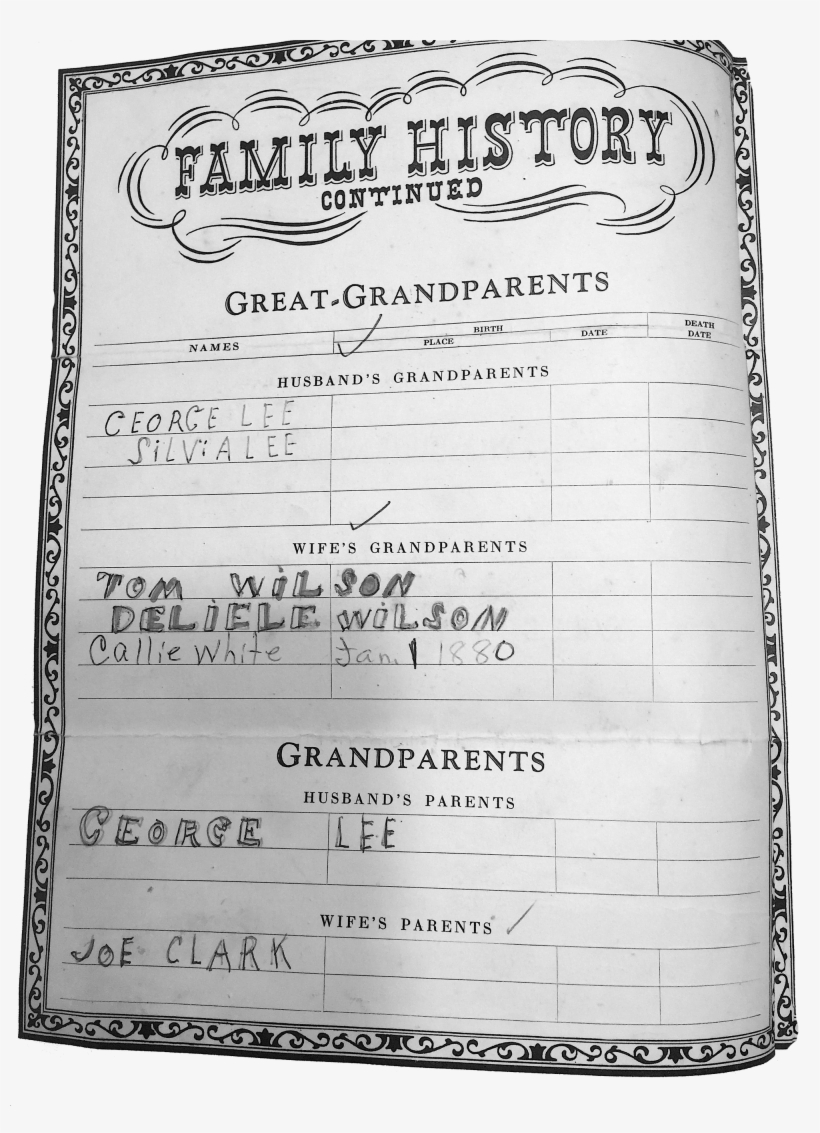 FAMILY HISTORY
CONTINUED
GREAT-GRANDPARENTS
NAMES BIRTH PLACE DATE DEATH DATE
HUSBAND'S GRANDPARENTS
GEORGE LEE
SiLViA LEE
WIFE'S GRANDPARENTS
TOM WiLSON
DELiELE WiLSON
Callie White Jan. 1 1880
GRANDPARENTS
HUSBAND'S PARENTS
GEORGE LEE
WIFE'S PARENTS
JOE CLARK